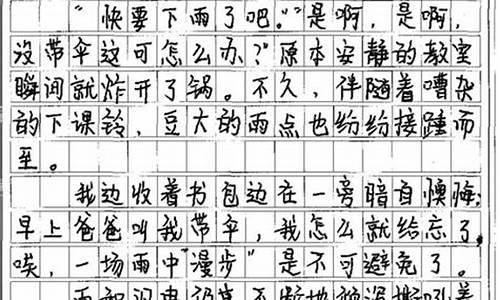 “快要下雨了吧。”“是啊，是啊，
没带伞这可怎么办？”原本安静的教室
瞬间就炸开了锅。不久，伴随着嘈杂
的下课铃，豆大的雨点也纷纷接踵而
至。
我边收着书包边在一旁暗自懊悔；
早上爸爸叫我带伞，我怎么就给忘了。
唉，一场雨中“漫步”是不可避免了。